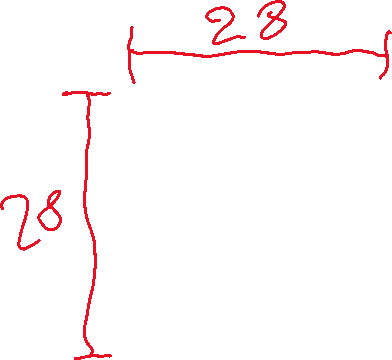 28
28